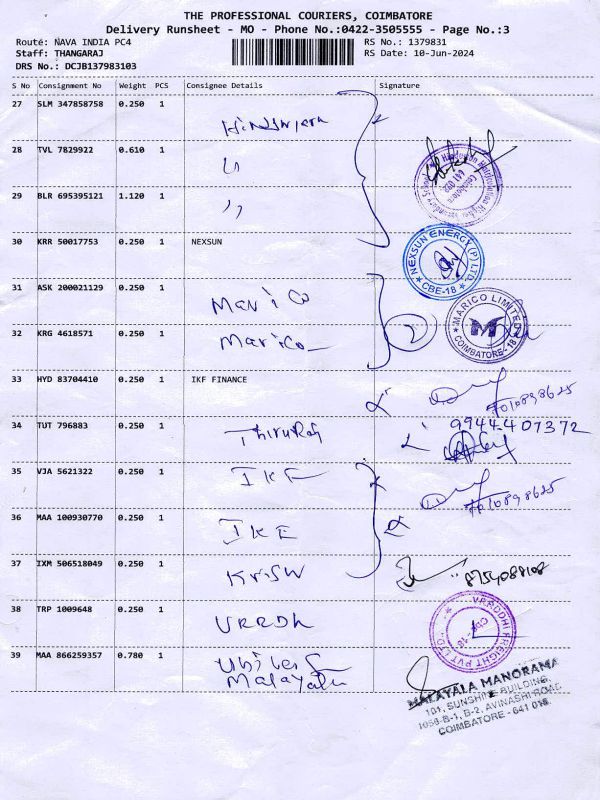 THE PROFESSIONAL COURIERS, COIMBATORE
Delivery Runsheet - MO - Phone No.:0422-3505555 - Page No.:3
Route: NAVA INDIA PC4
Staff: THANGARAJ
DRS No.: DCJB137983103
RS No.: 1379831
RS Date: 10-Jun-2024
S No Consignment No Weight PCS Consignee Details Signature
27 SLM 347858758 0.250 1
28 TVL 7829922 0.610 1 "
29 BLR 695395121 1.120 1 "
30 KRR 50017753 0.250 1 NEXSUN
NEXSUN ENERGY (P) LTD.
CBE-18
31 ASK 200021129 0.250 1 Marico
32 KRG 4618571 0.250 1 Marico
MARICO LIMITED
M
COIMBATORE-18
33 HYD 83704410 0.250 1 IKF FINANCE
34 TUT 796883 0.250 1 9944407372
35 VJA 5621322 0.250 1 IKF
36 MAA 100930770 0.250 1 IKF
37 IXM 506518049 0.250 1
38 TRP 1009648 0.250 1
VRRDDHI FREIGHT PVT LTD
CBE-18
39 MAA 866259357 0.780 1
MALAYALA MANORAMA
101, SUNSHINE BUILDING,
1056-B-1, B-2, AVINASHI ROAD,
COIMBATORE - 641 018.